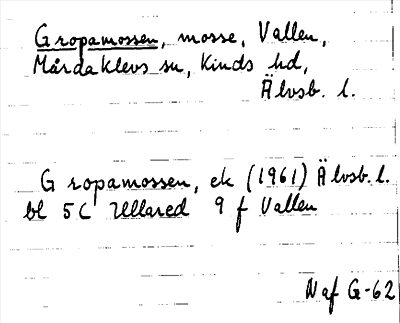 Gropamossen, mosse, Vallen,
Mårdaklevs sn, Kinds hd,
Älvsb. l.
Gropamossen, ek (1961) Älvsb. l.
bl 5C Ullared 9 f Vallen
N af G-62